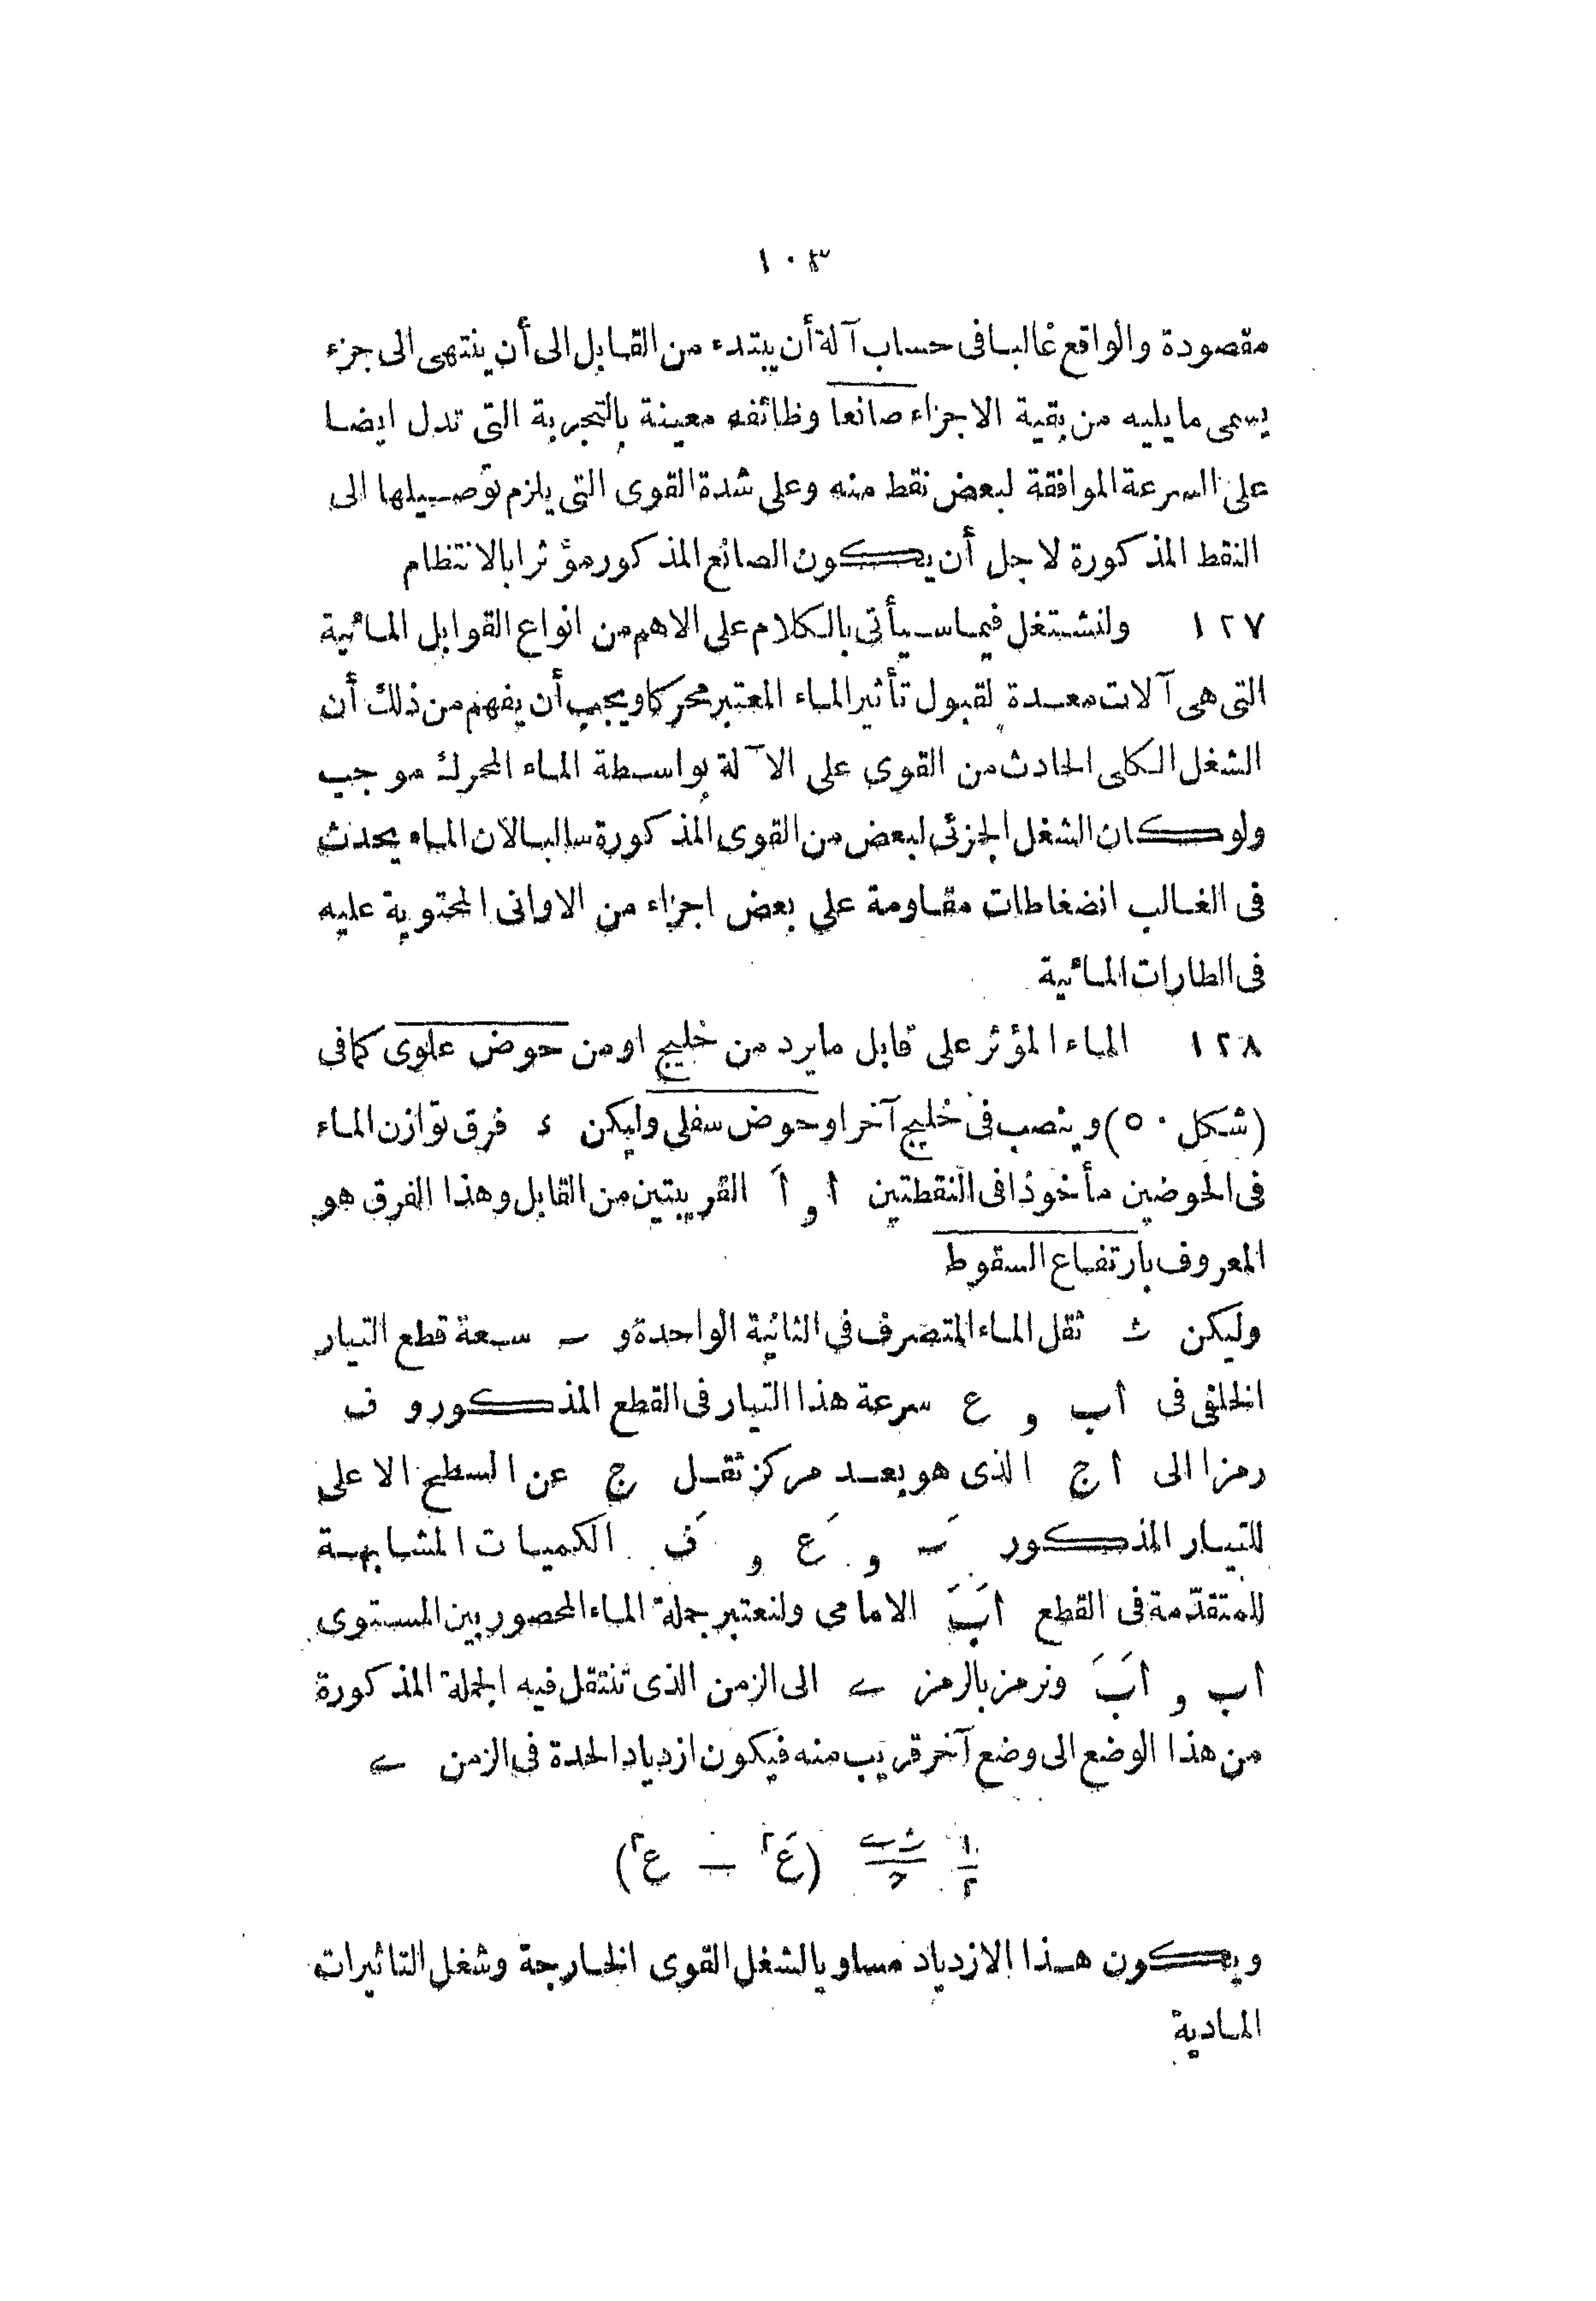 ١٠٣
مقصودة والواقع غالبا فى حساب آلة أن يبتدء من القابل الى أن ينتهى الى جزء
يسمى ما يليه من بقية الاجزاء صانعا وظائفه معينة بالتجربة التى تدل ايضا
على السرعة الموافقة لبعض نقط منه وعلى شدة القوى التى يلزم توصيلها الى
النقط المذكورة لاجل أن يكون الصانع المذكور مؤثرا بالانتظام
١٢٧ ولنشتغل فيما سيأتى بالكلام على الاهم من انواع القوابل المائية
التى هى آلات معدة لقبول تأثير الماء المعتبر محركا ويجب أن يفهم من ذلك أن
الشغل الكلى الحادث من القوى على الآلة بواسطة الماء المحرك موجب
ولو كان الشغل الجزئى لبعض من القوى المذكورة سالبا لان الماء يحدث
فى الغالب انضغاطات مقاومة على بعض اجزاء من الاوانى المحتوية عليه
فى الطارات المائية
١٢٨ الماء المؤثر على قابل ما يرد من خليج او من حوض علوى كما فى
(شكل ٥٠) وينصب فى خليج آخر او حوض سفلى وليكن ء فرق توازن الماء
فى الحوضين مأخوذا فى النقطتين ا و اَ القريبتين من القابل وهذا الفرق هو
المعروف بارتفاع السقوط
وليكن ث ثقل الماء المتصرف فى الثانية الواحدة و ـ سعة قطع التيار
الخلفى فى اب و ع سرعة هذا التيار فى القطع المذكور و ف
رمزا الى اج الذى هو بعد مركز ثقل ج عن السطح الاعلى
للتيار المذكور ـَ و عَ و فَ الكميات المشابهة
للمتقدّمة فى القطع اَبَ الامامى ولنعتبر جملة الماء المحصور بين المستوى
اب و اَبَ ونرمز بالرمز ے الى الزمن الذى تنتقل فيه الجملة المذكورة
من هذا الوضع الى وضع آخر قريب منه فيكون ازدياد الحدة فى الزمن ے
١/٢ ثے/ح (عَ٢ — ع٢)
ويكون هذا الازدياد مساويا لشغل القوى الخارجة وشغل التاثيرات
المادية